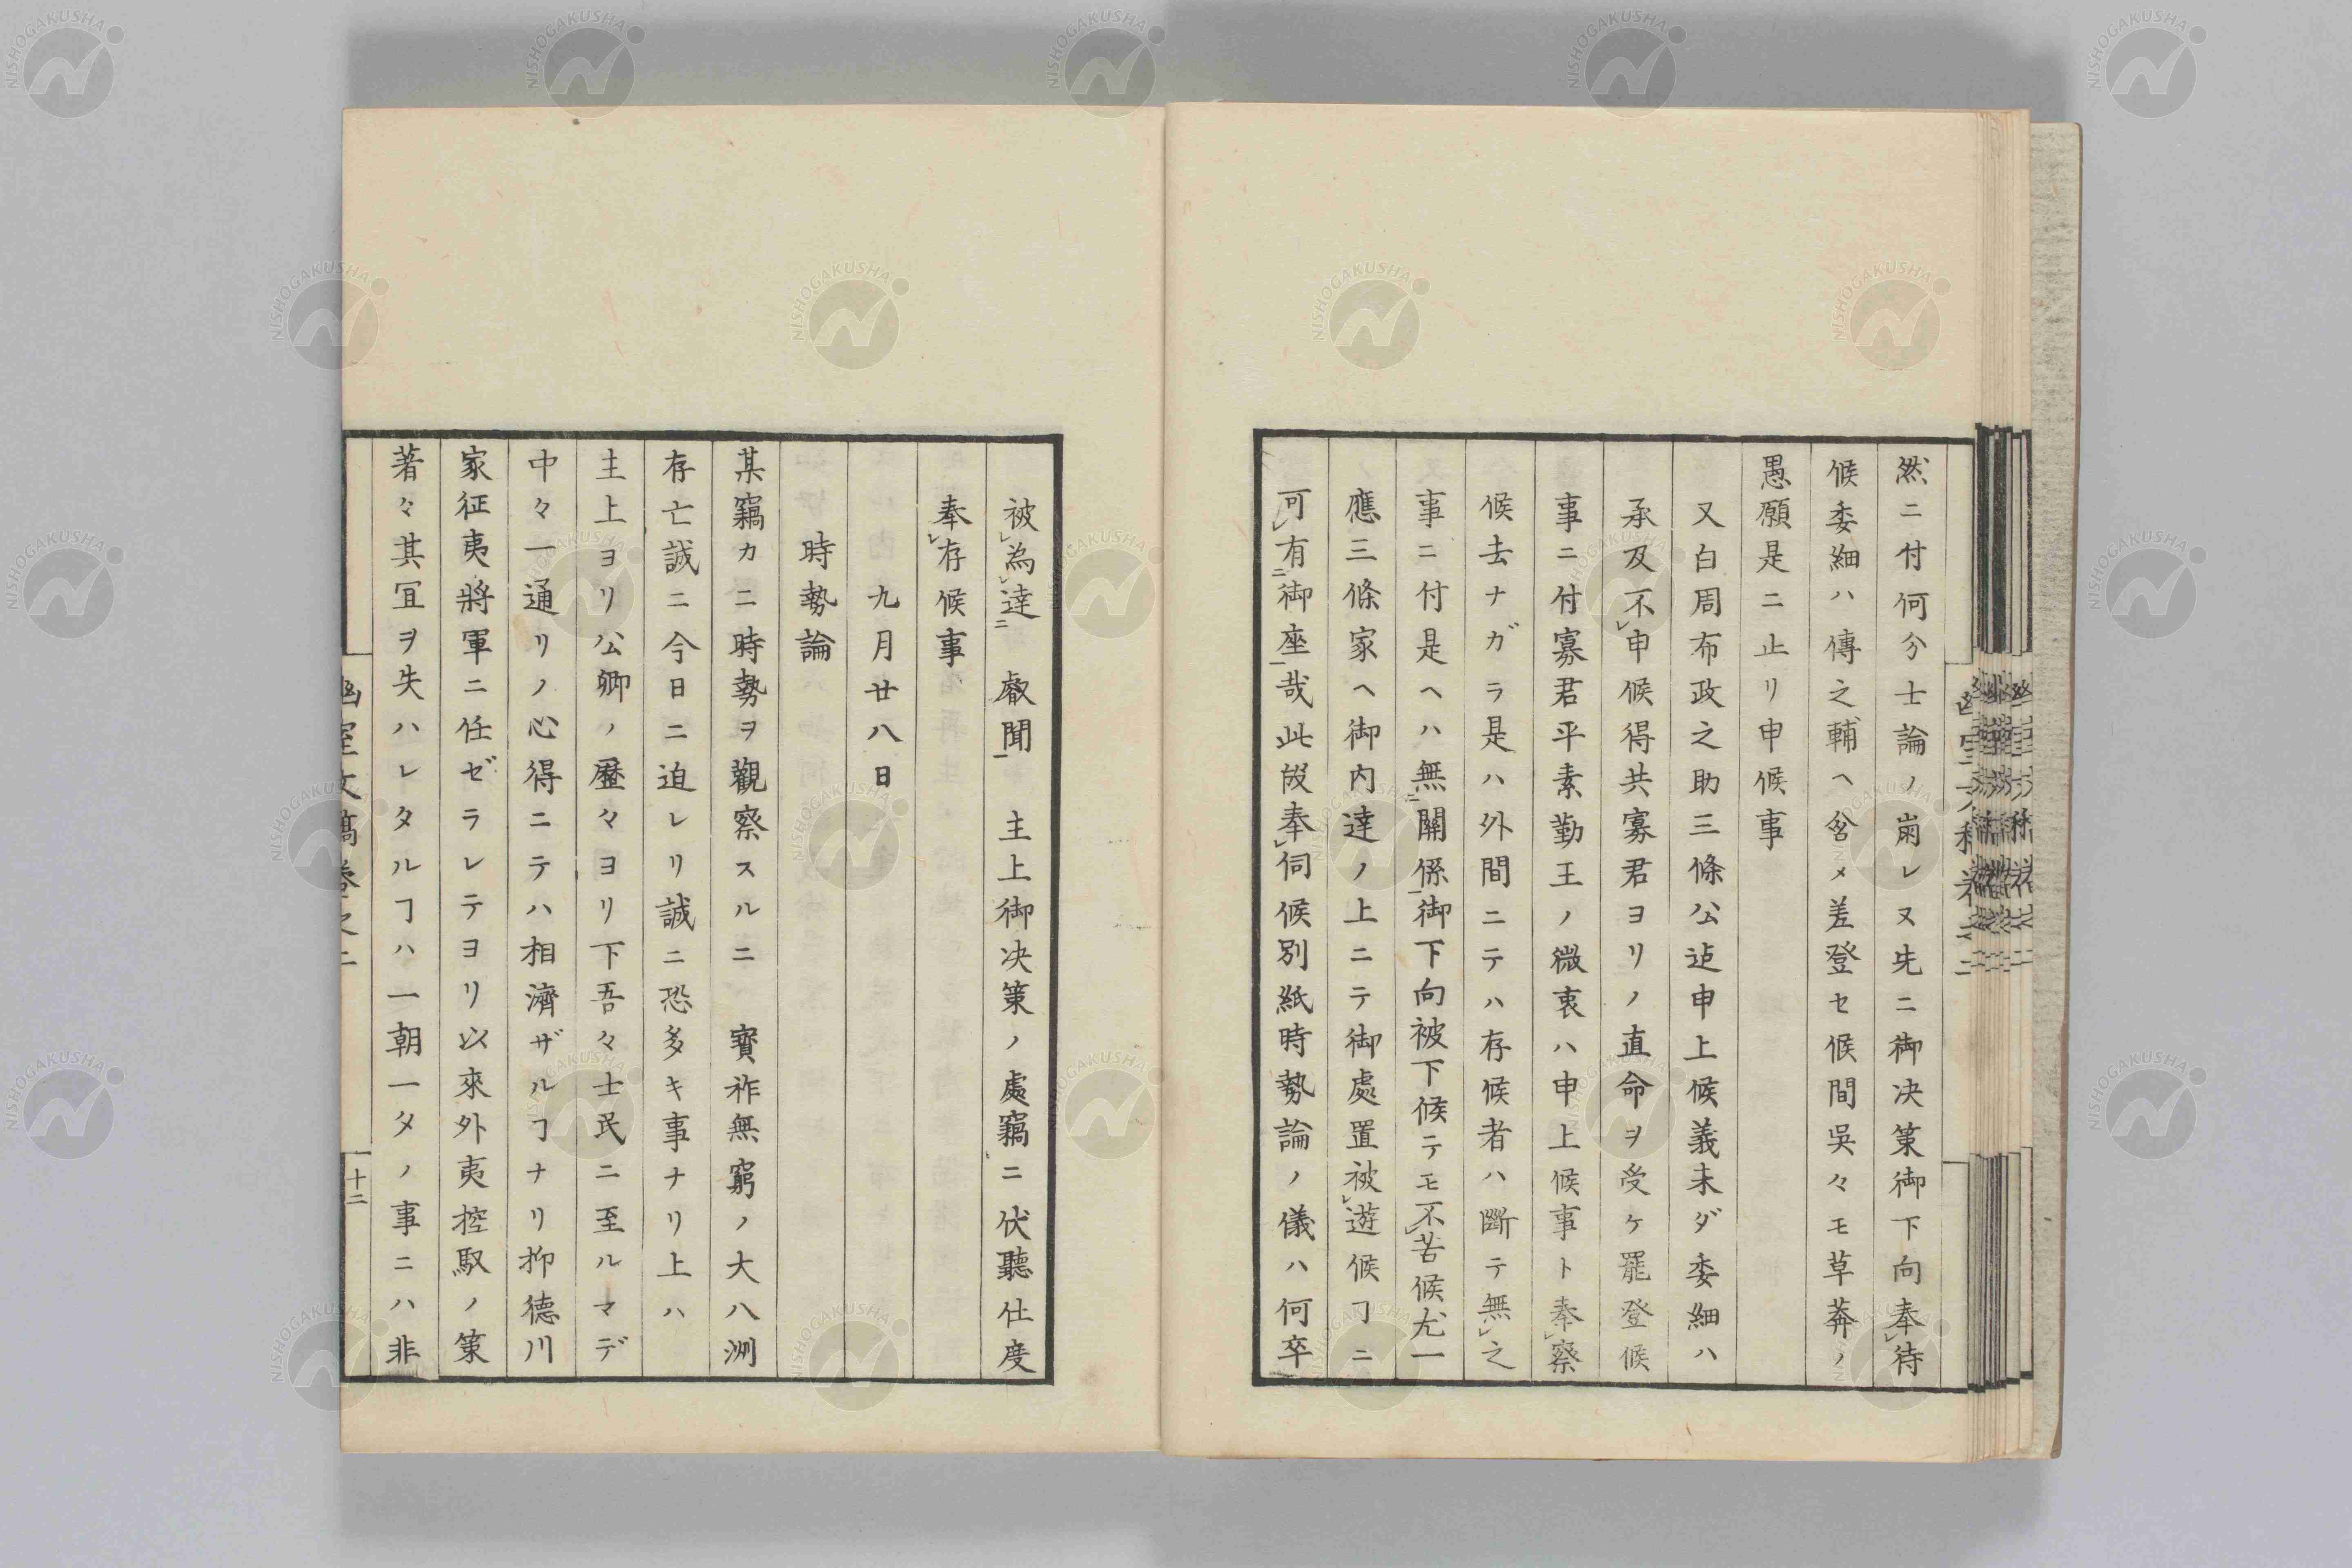 然ニ付何分士論ノ崩レヌ先ニ御决策御下向奉㆑待
候委細ハ傳之輔ヘ含メ差登セ候間呉々モ草莽ノ
愚願是ニ止リ申候事
又白周布政之助三條公迠申上候義未ダ委細ハ
承及不㆑申候得共寡君ヨリノ直命ヲ受ケ罷登候
事ニ付寡君平素勤王ノ微衷ハ申上候事ト奉㆑察
候去ナガラ是ハ外間ニテハ存候者ハ斷テ無㆑之
事ニ付是ヘハ無㆓關係㆒御下向被下候テモ不㆑苦候尤一
應三條家ヘ御内達ノ上ニテ御處置被㆑遊候ヿニ
可㆑有㆓御座㆒哉此段奉㆑伺候別紙時勢論ノ儀ハ何卒
被㆑為㆑達㆓ 叡聞㆒ 主上御决策ノ處竊ニ伏聽仕度
奉㆑存候事
九月廿八日
時勢論
某竊カニ時勢ヲ觀察スルニ 寳祚無窮ノ大八洲
存亡誠ニ今日ニ迫レリ誠ニ恐多キ事ナリ上ハ
主上ヨリ公卿ノ歷々ヨリ下吾々士民ニ至ルマデ
中々一通リノ心得ニテハ相濟ザルヿナリ抑德川
家征夷將軍ニ任ゼラレテヨリ以來外夷控馭ノ策
著々其冝ヲ失ハレタルヿハ一朝一夕ノ事ニハ非
幽室文稿卷之二
十二